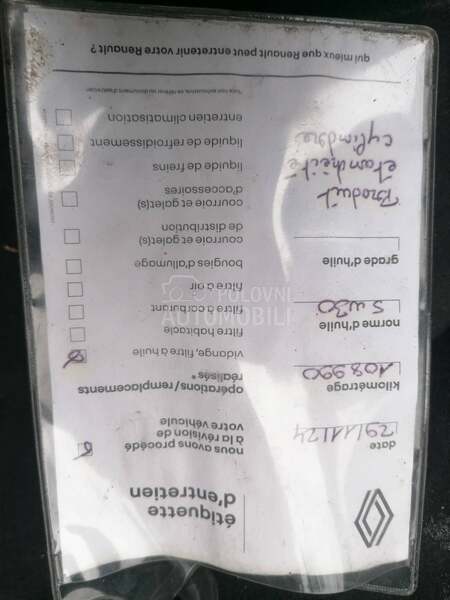 étiquette
d'entretien
date
29/11/24
kilométrage
108990
norme d'huile
5w30
grade d'huile
Produit
étanchéité
cylindre
nous avons procédé
à la révision de
votre véhicule
opérations/remplacements
réalisés*
vidange, filtre à huile
filtre habitacle
filtre à carburant
filtre à air
bougies d'allumage
courroie et galet(s)
de distribution
courroie et galet(s)
d'accessoires
liquide de freins
liquide de refroidissement
entretien climatisation
qui mieux que Renault peut entretenir votre Renault ?
POLOVNI
AUTOMOBILI